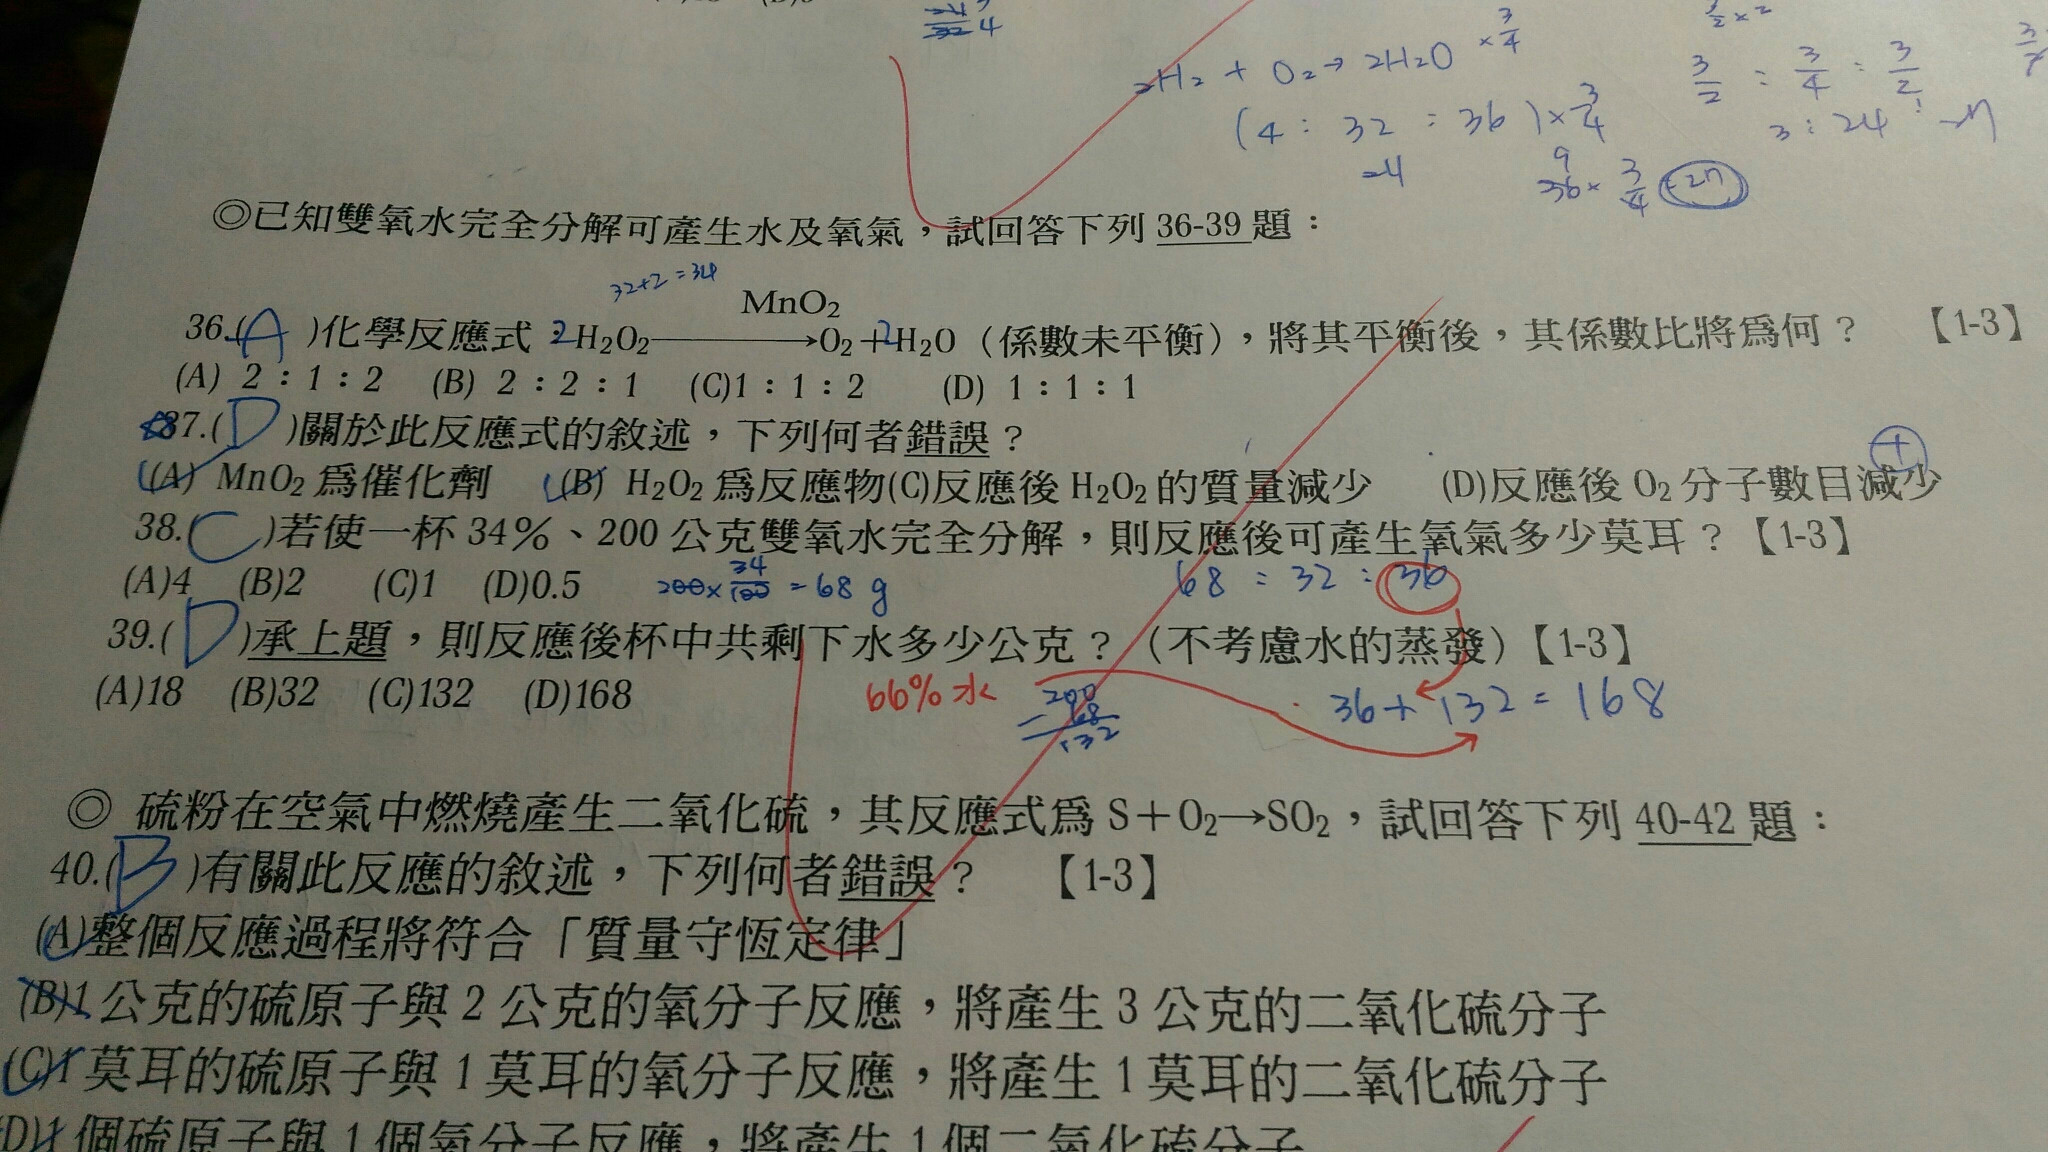 2H₂ + O₂ → 2H₂O ×3/4
3/2 : 3/4 : 3/2
(4 : 32 : 36) × 3/4
3 : 24 :
36 × 3/4 = 27
◎已知雙氧水完全分解可產生水及氧氣，試回答下列 36-39 題：
32+2=34
MnO₂
36.(A)化學反應式 2H₂O₂———→O₂+2H₂O（係數未平衡），將其平衡後，其係數比將為何？ 【1-3】
(A) 2：1：2 (B) 2：2：1 (C)1：1：2 (D) 1：1：1
37.(D)關於此反應式的敘述，下列何者錯誤？
(A) MnO₂ 為催化劑 (B) H₂O₂ 為反應物(C)反應後 H₂O₂ 的質量減少 (D)反應後 O₂ 分子數目減少
38.(C)若使一杯 34%、200 公克雙氧水完全分解，則反應後可產生氧氣多少莫耳？【1-3】
(A)4 (B)2 (C)1 (D)0.5 200×34/100=68 g 68 : 32 : 36
39.(D)承上題，則反應後杯中共剩下水多少公克？（不考慮水的蒸發）【1-3】
(A)18 (B)32 (C)132 (D)168 66%水 200 - 68 = 132 36+132=168
◎ 硫粉在空氣中燃燒產生二氧化硫，其反應式為 S＋O₂→SO₂，試回答下列 40-42 題：
40.(B)有關此反應的敘述，下列何者錯誤？ 【1-3】
(A)整個反應過程將符合「質量守恆定律」
(B)1 公克的硫原子與 2 公克的氧分子反應，將產生 3 公克的二氧化硫分子
(C)1 莫耳的硫原子與 1 莫耳的氧分子反應，將產生 1 莫耳的二氧化硫分子
(D)1 個硫原子與 1 個氧分子反應，將產生 1 個二氧化硫分子